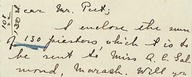 Dear Mr. Peet,
I enclose the sum
of 130 piastres, which it is to
be sent to Miss A. C. Sal
mond, Marash. Will you